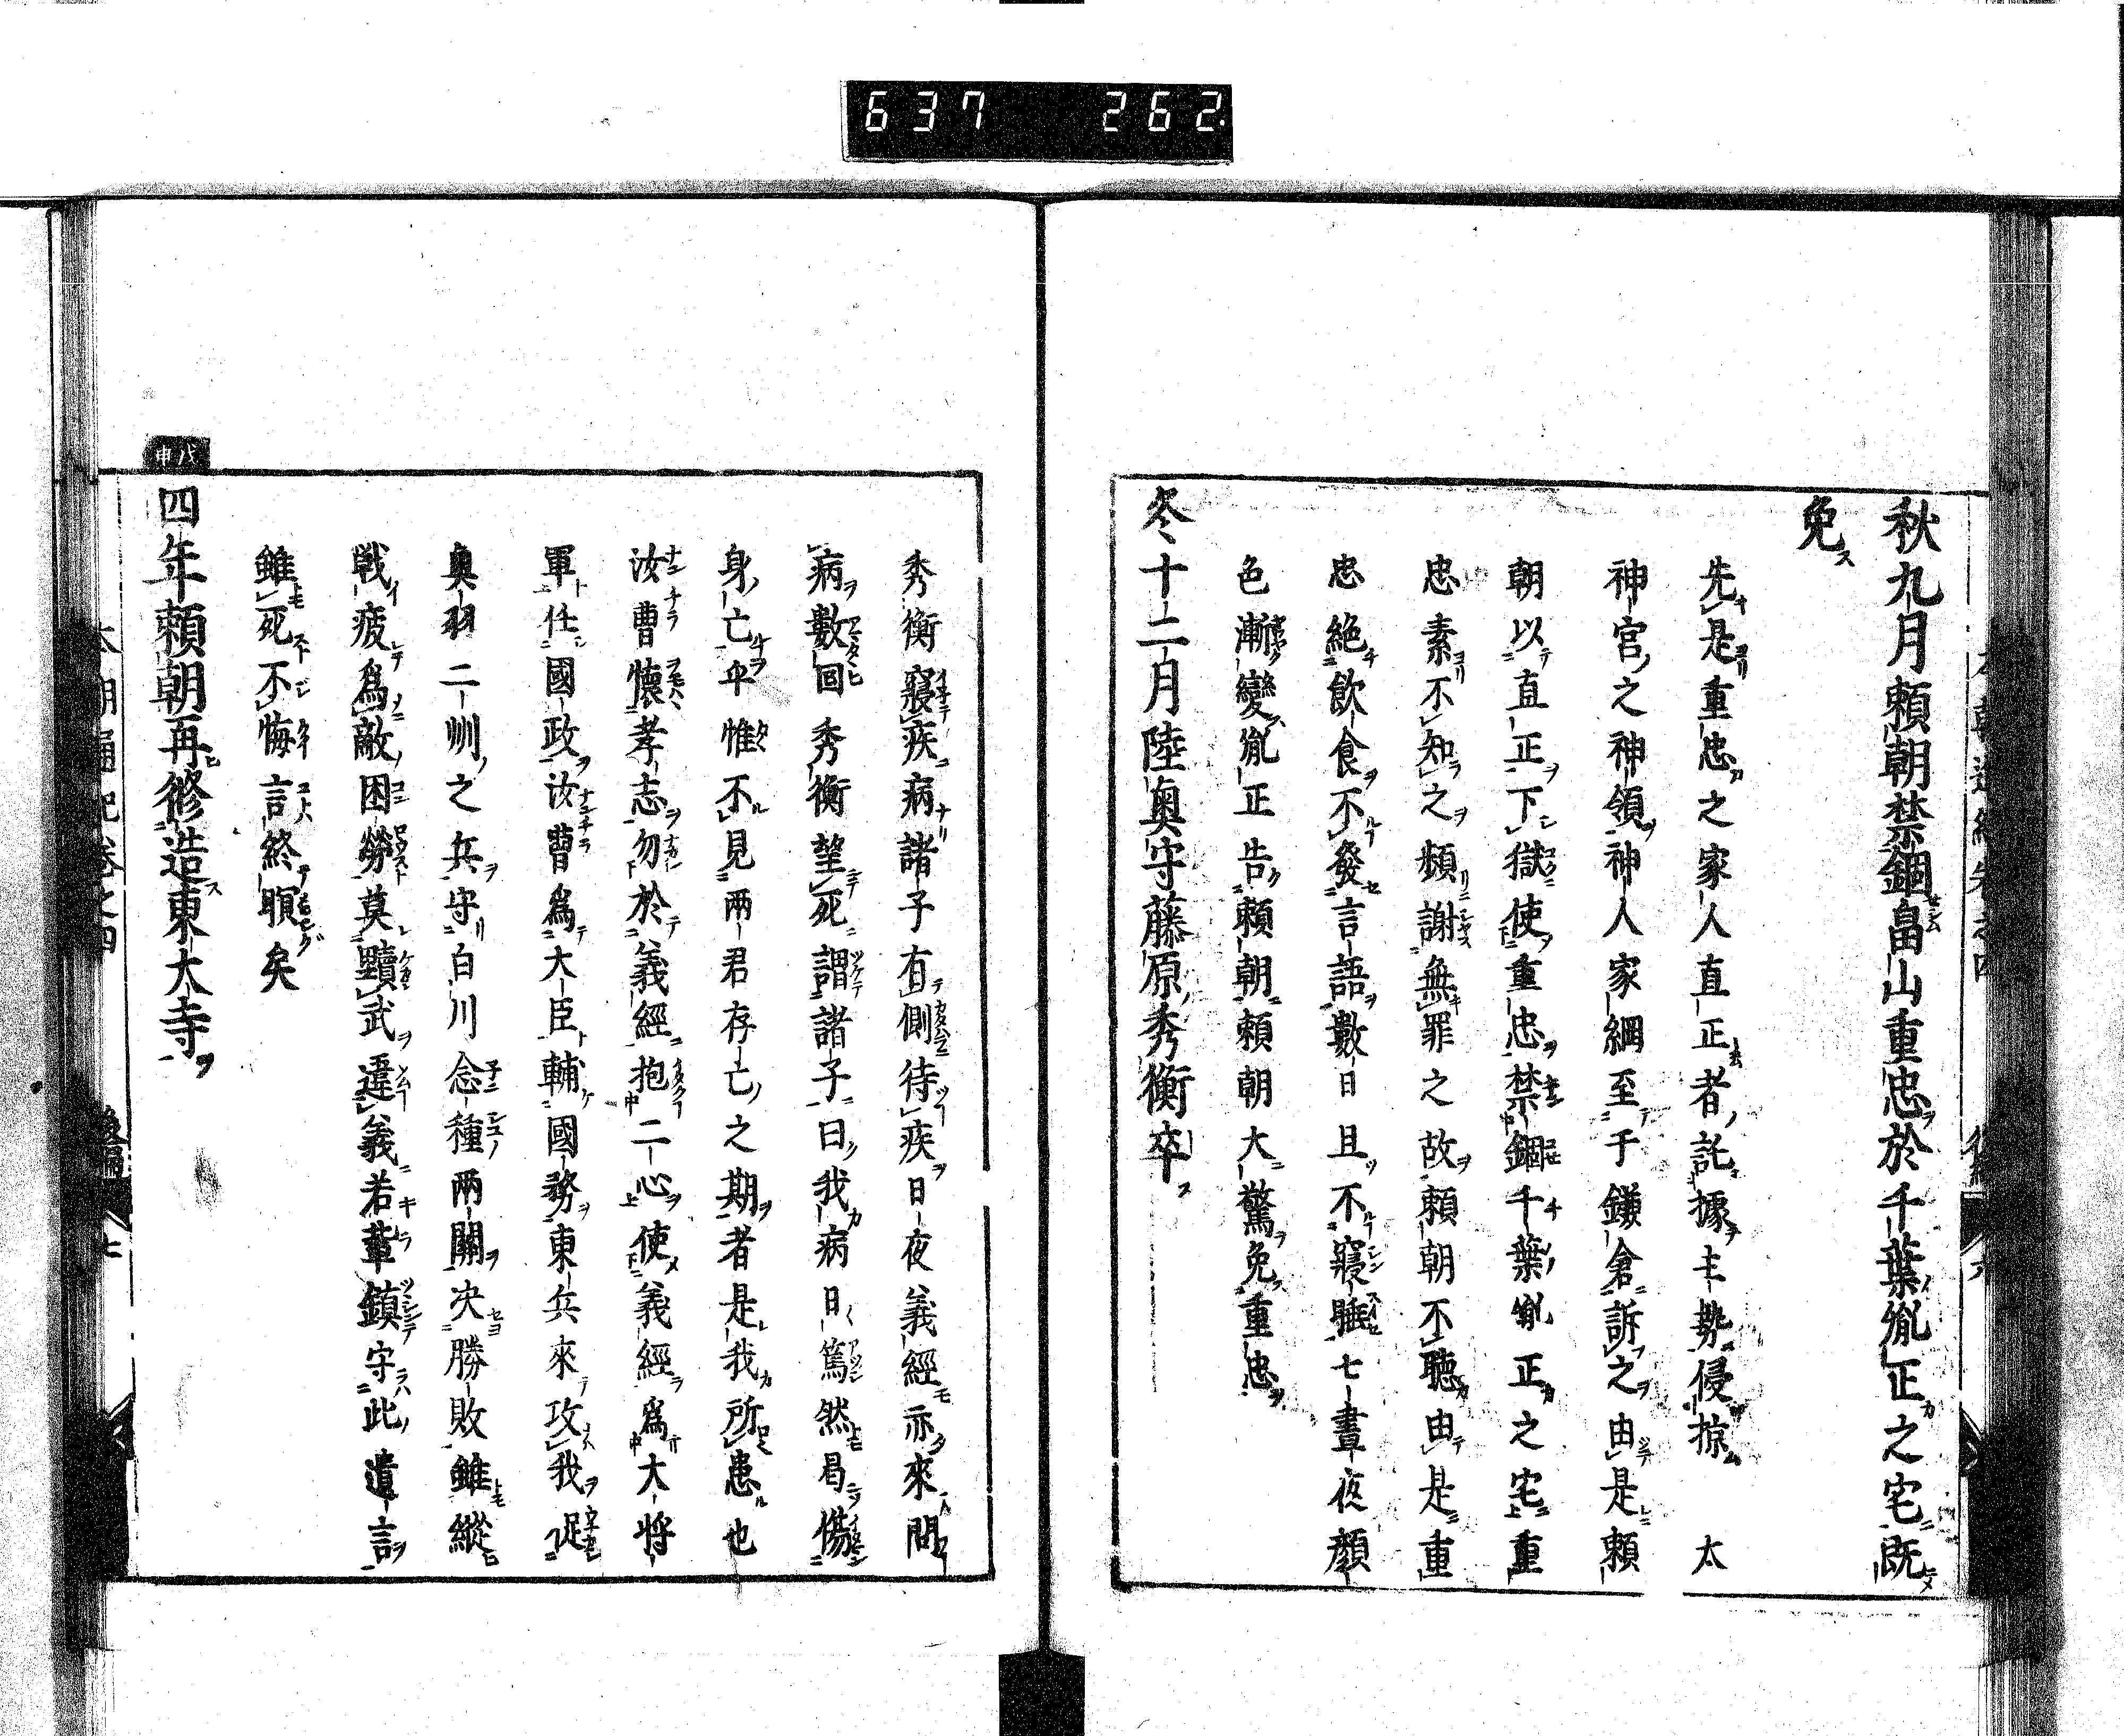 637 262
秋九月頼朝禁錮畠山重忠於千葉胤正之宅既
免
先是重忠之家人直正者託據主勢侵掠 太
神宮之神領神人家綱至于鎌倉訴之由是頼
朝以直正下獄使重忠禁錮千葉胤正之宅重
忠素不知之頻謝無罪之故頼朝不聴由是重
忠絶飲食不發言語數日且不寢睡七晝夜顔
色漸變胤正告頼朝頼朝大驚免重忠
冬十二月陸奥守藤原秀衡卒
秀衡寢疾病諸子有側待疾日夜義經亦來問
病數回秀衡望死謂諸子曰我病日篤然曷傷
身亡乎惟不見兩君存亡之期者是我所患也
汝曹懷孝志勿於義經抱二心使義經爲大将
軍仕國政汝曹爲大臣輔國務東兵來攻我促
奥羽二州之兵守白川念種兩關决勝敗雖縱
戦疲爲敵困勞莫黷武違義若輩鎮守此遺言
雖死不悔言終瞑矣
戊申
四年頼朝再修造東大寺
本朝通紀卷之四 後編 七